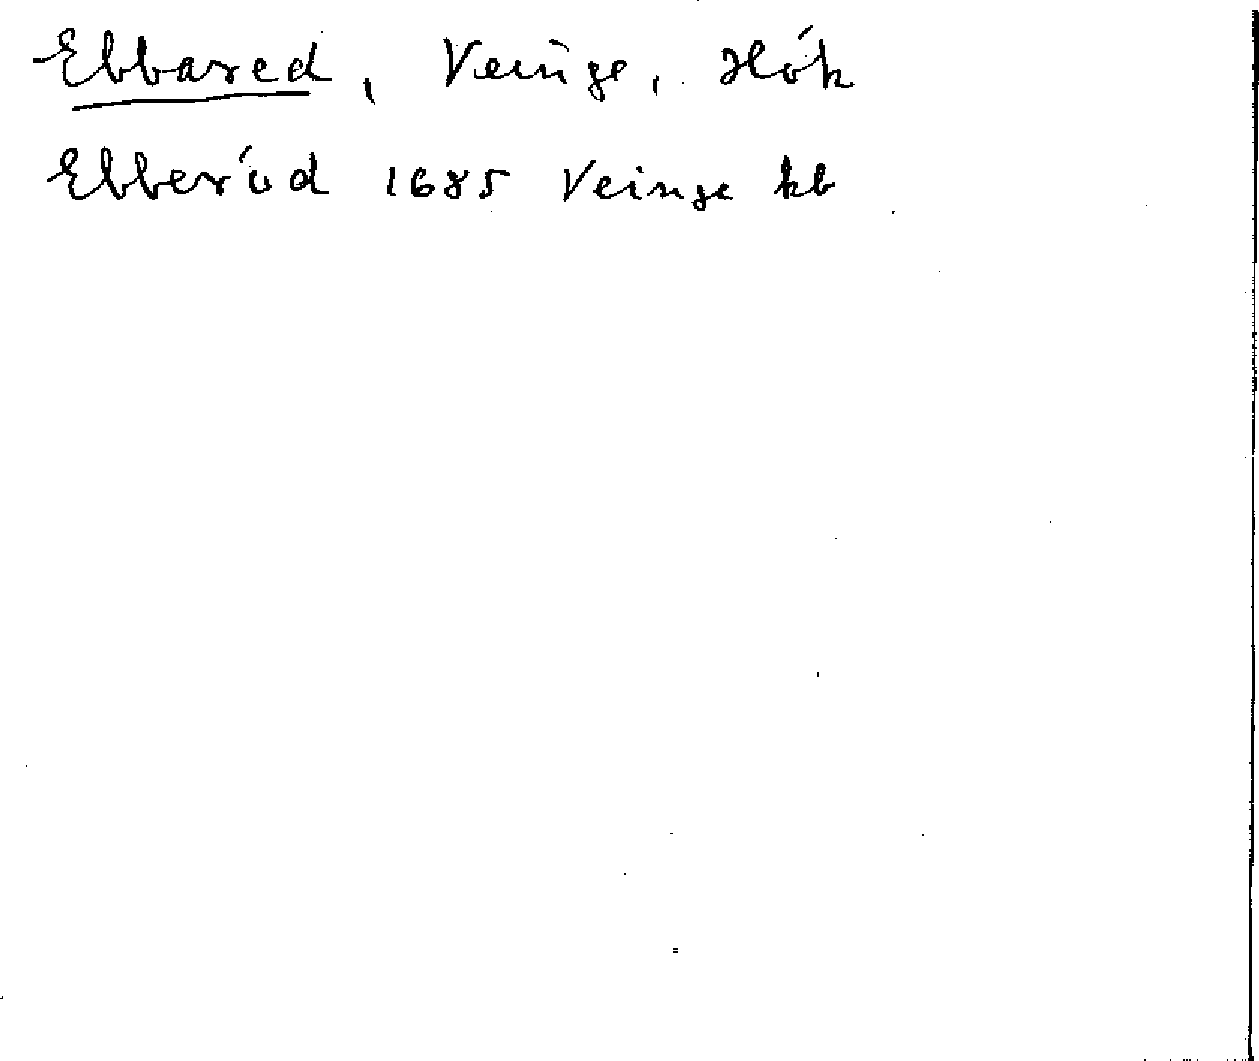 Ebbared, Veinge, Hök
Ebberöd 1685 Veinge kb